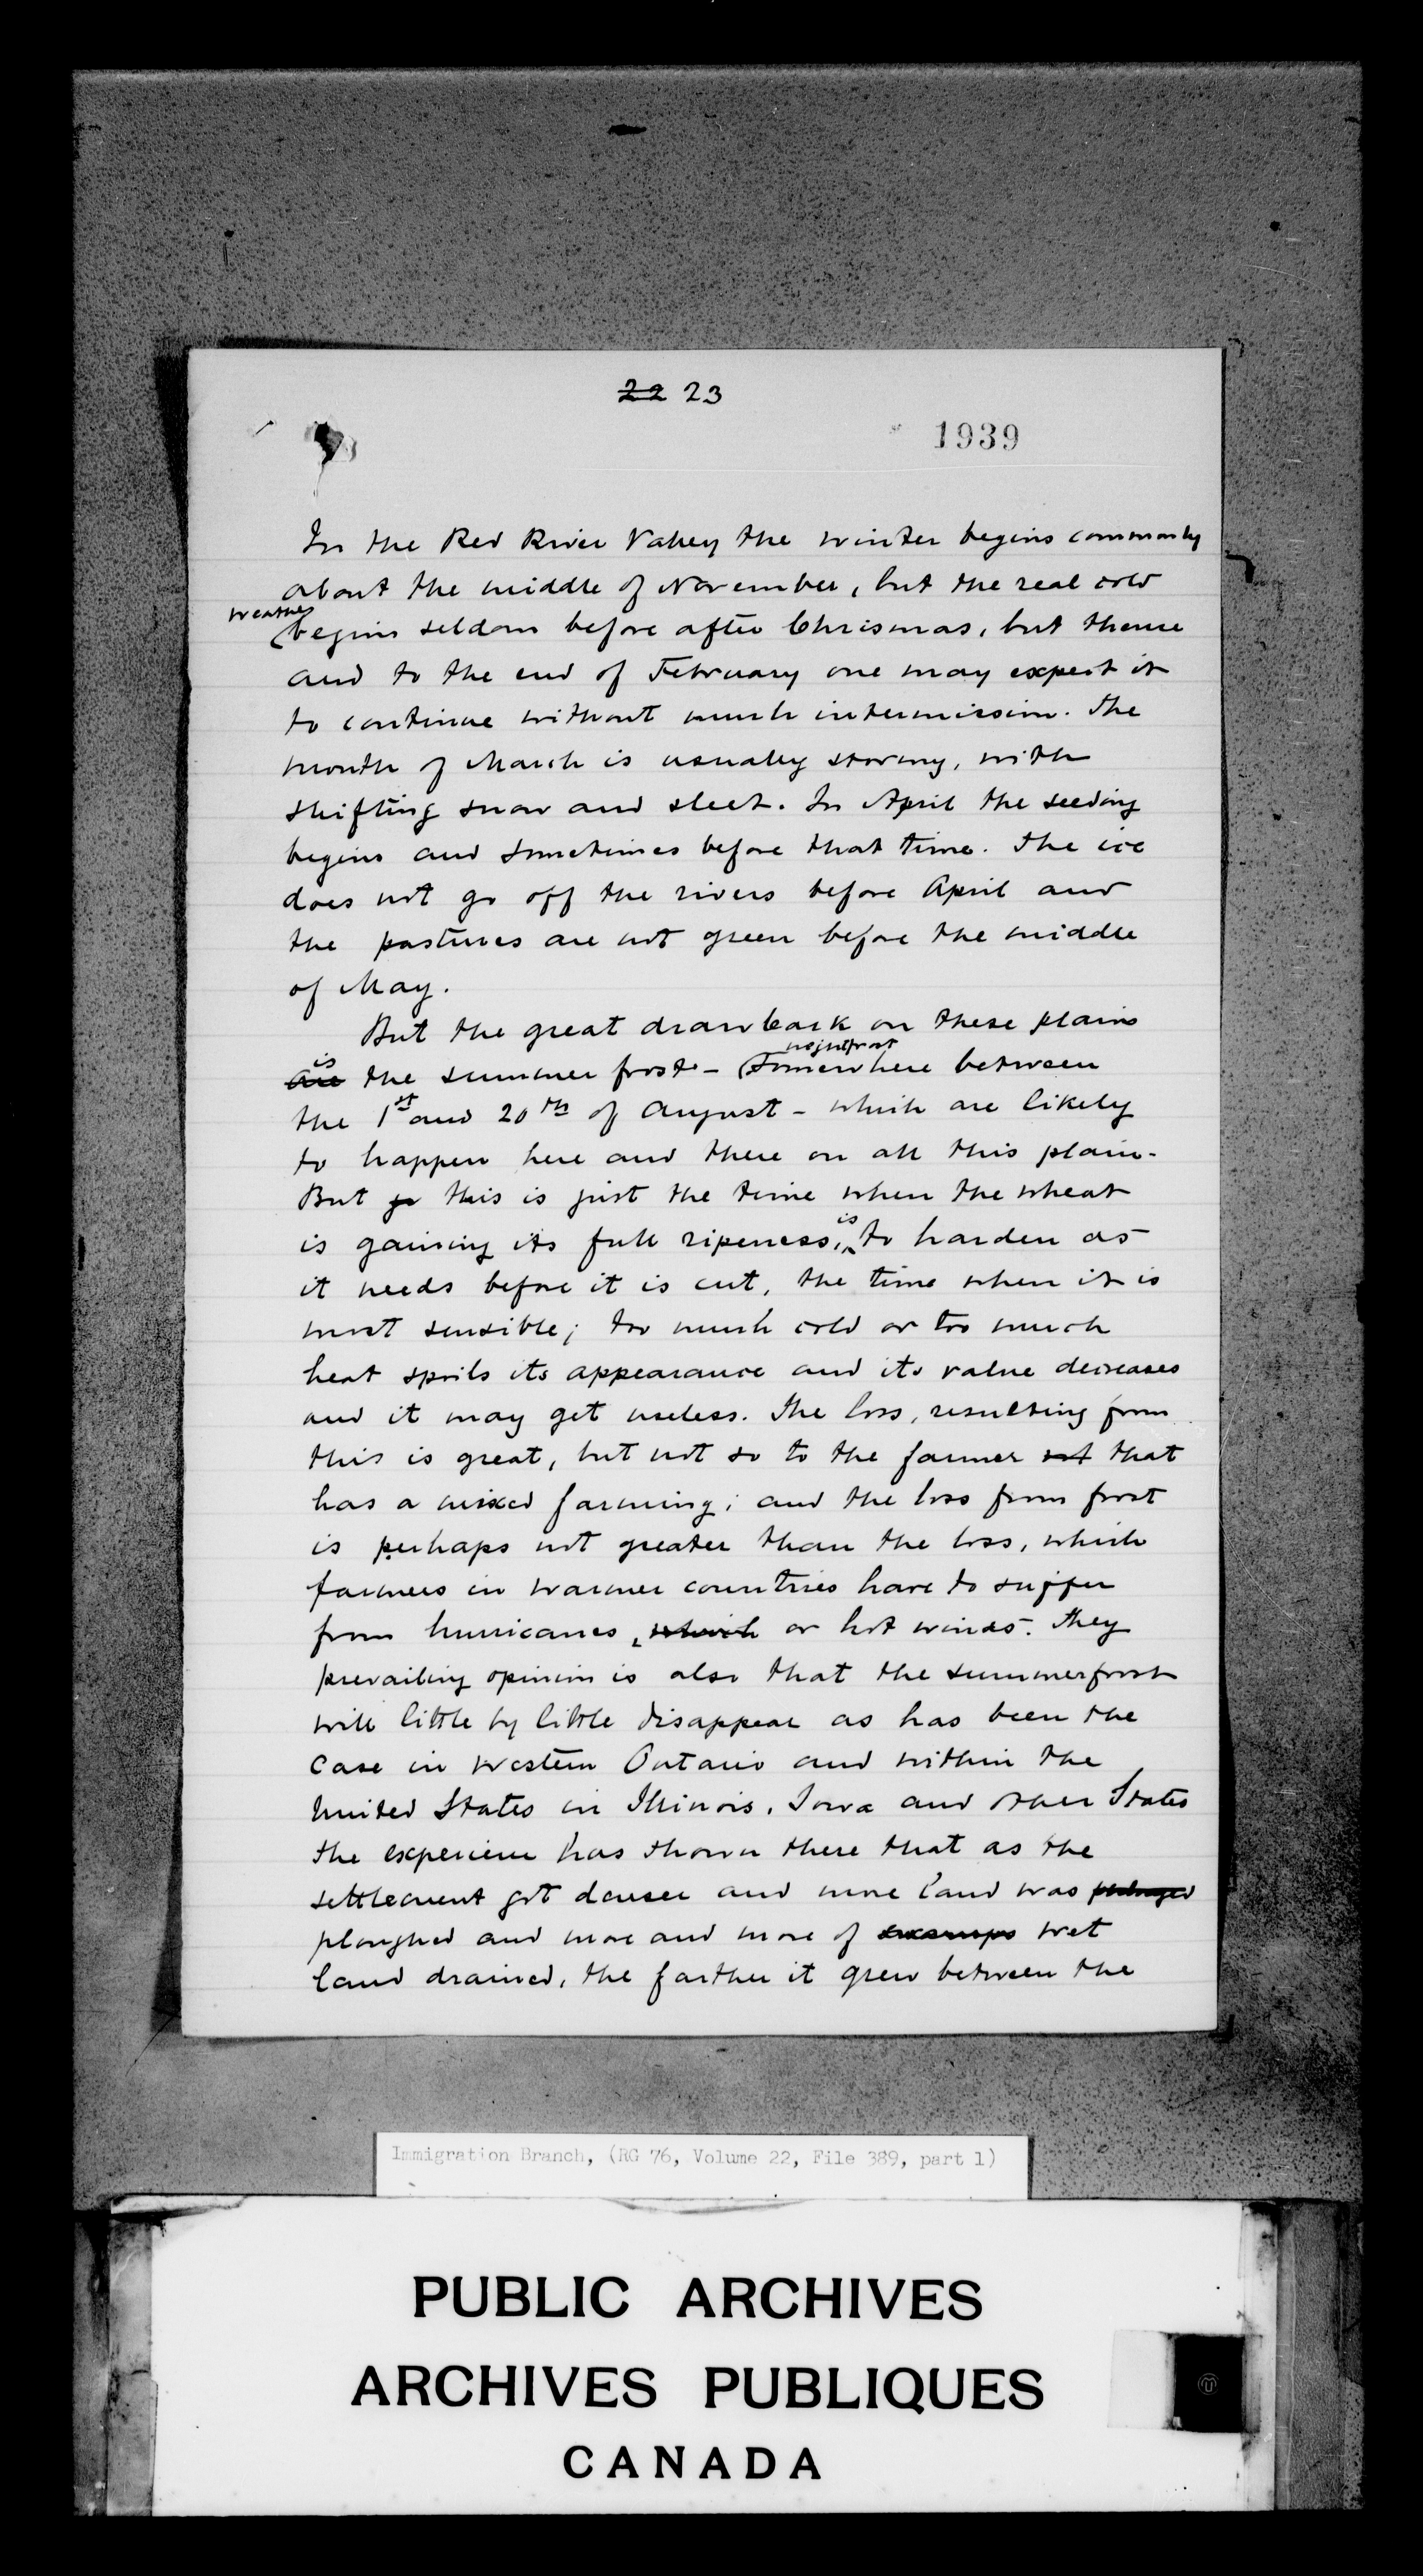 22 23
1939
In the Red River Valley the winter begins commonly
about the middle of November, but the real cold
weather
begins seldom before after Chrismas, but thence
and to the end of February one may expect it
to continue without much intermission. The
month of March is usually stormy, with
shifting snow and sleet. In April the seeding
begins and sometimes before that time. The ice
does not go off the rivers before April and
the pastures are not green before the middle
of May.
But the great drawback on these plains
is nightfrost
are the summer frost - (somewhere between
the 1st and 20th of August - which are likely
to happen here and there on all this plain.
But this is just the time when the wheat
is
is gaining its full ripeness, to harden as
it needs before it is cut, the time when it is
most sensible; too much cold or too much
heat spoils its appearance and its value decreases
and it may get useless. The loss, resulting from
this is great, but not so to the farmer not that
has a mixed farming; and the loss from frost
is perhaps not greater than the loss, which
farmers in warmer countries have to suffer
from hurricanes, which or hot winds. They
prevailing opinion is also that the summerfrost
will little by little disappear as has been the
case in Western Ontario and within the
United States in Illinois, Iowa and other States
the experience has shown there that as the
settlement got denser and more land was
ploughed and more and more of swamps wet
land drained, the farther it grew between the
Immigration Branch, (RG 76, Volume 22, File 389, part 1)
PUBLIC ARCHIVES
ARCHIVES PUBLIQUES
CANADA